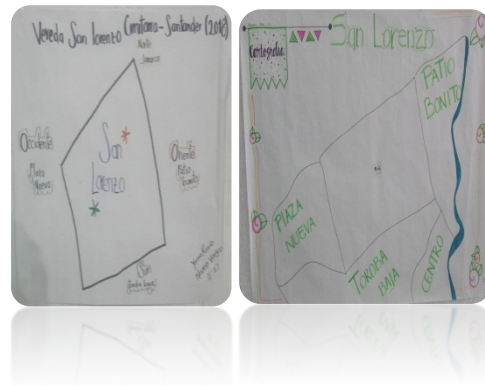 Vereda San Lorenzo Cimitarra - Santander (2018)
Norte
Jamaica
Occidente
Plaza
Nueva
San
Lorenzo
Oriente
Patio
Bonito
Sur
Toroba baja
Cartografía
San Lorenzo
PATIO
BONITO
PLAZA
NUEVA
TOROBA
BAJA
CENTRO